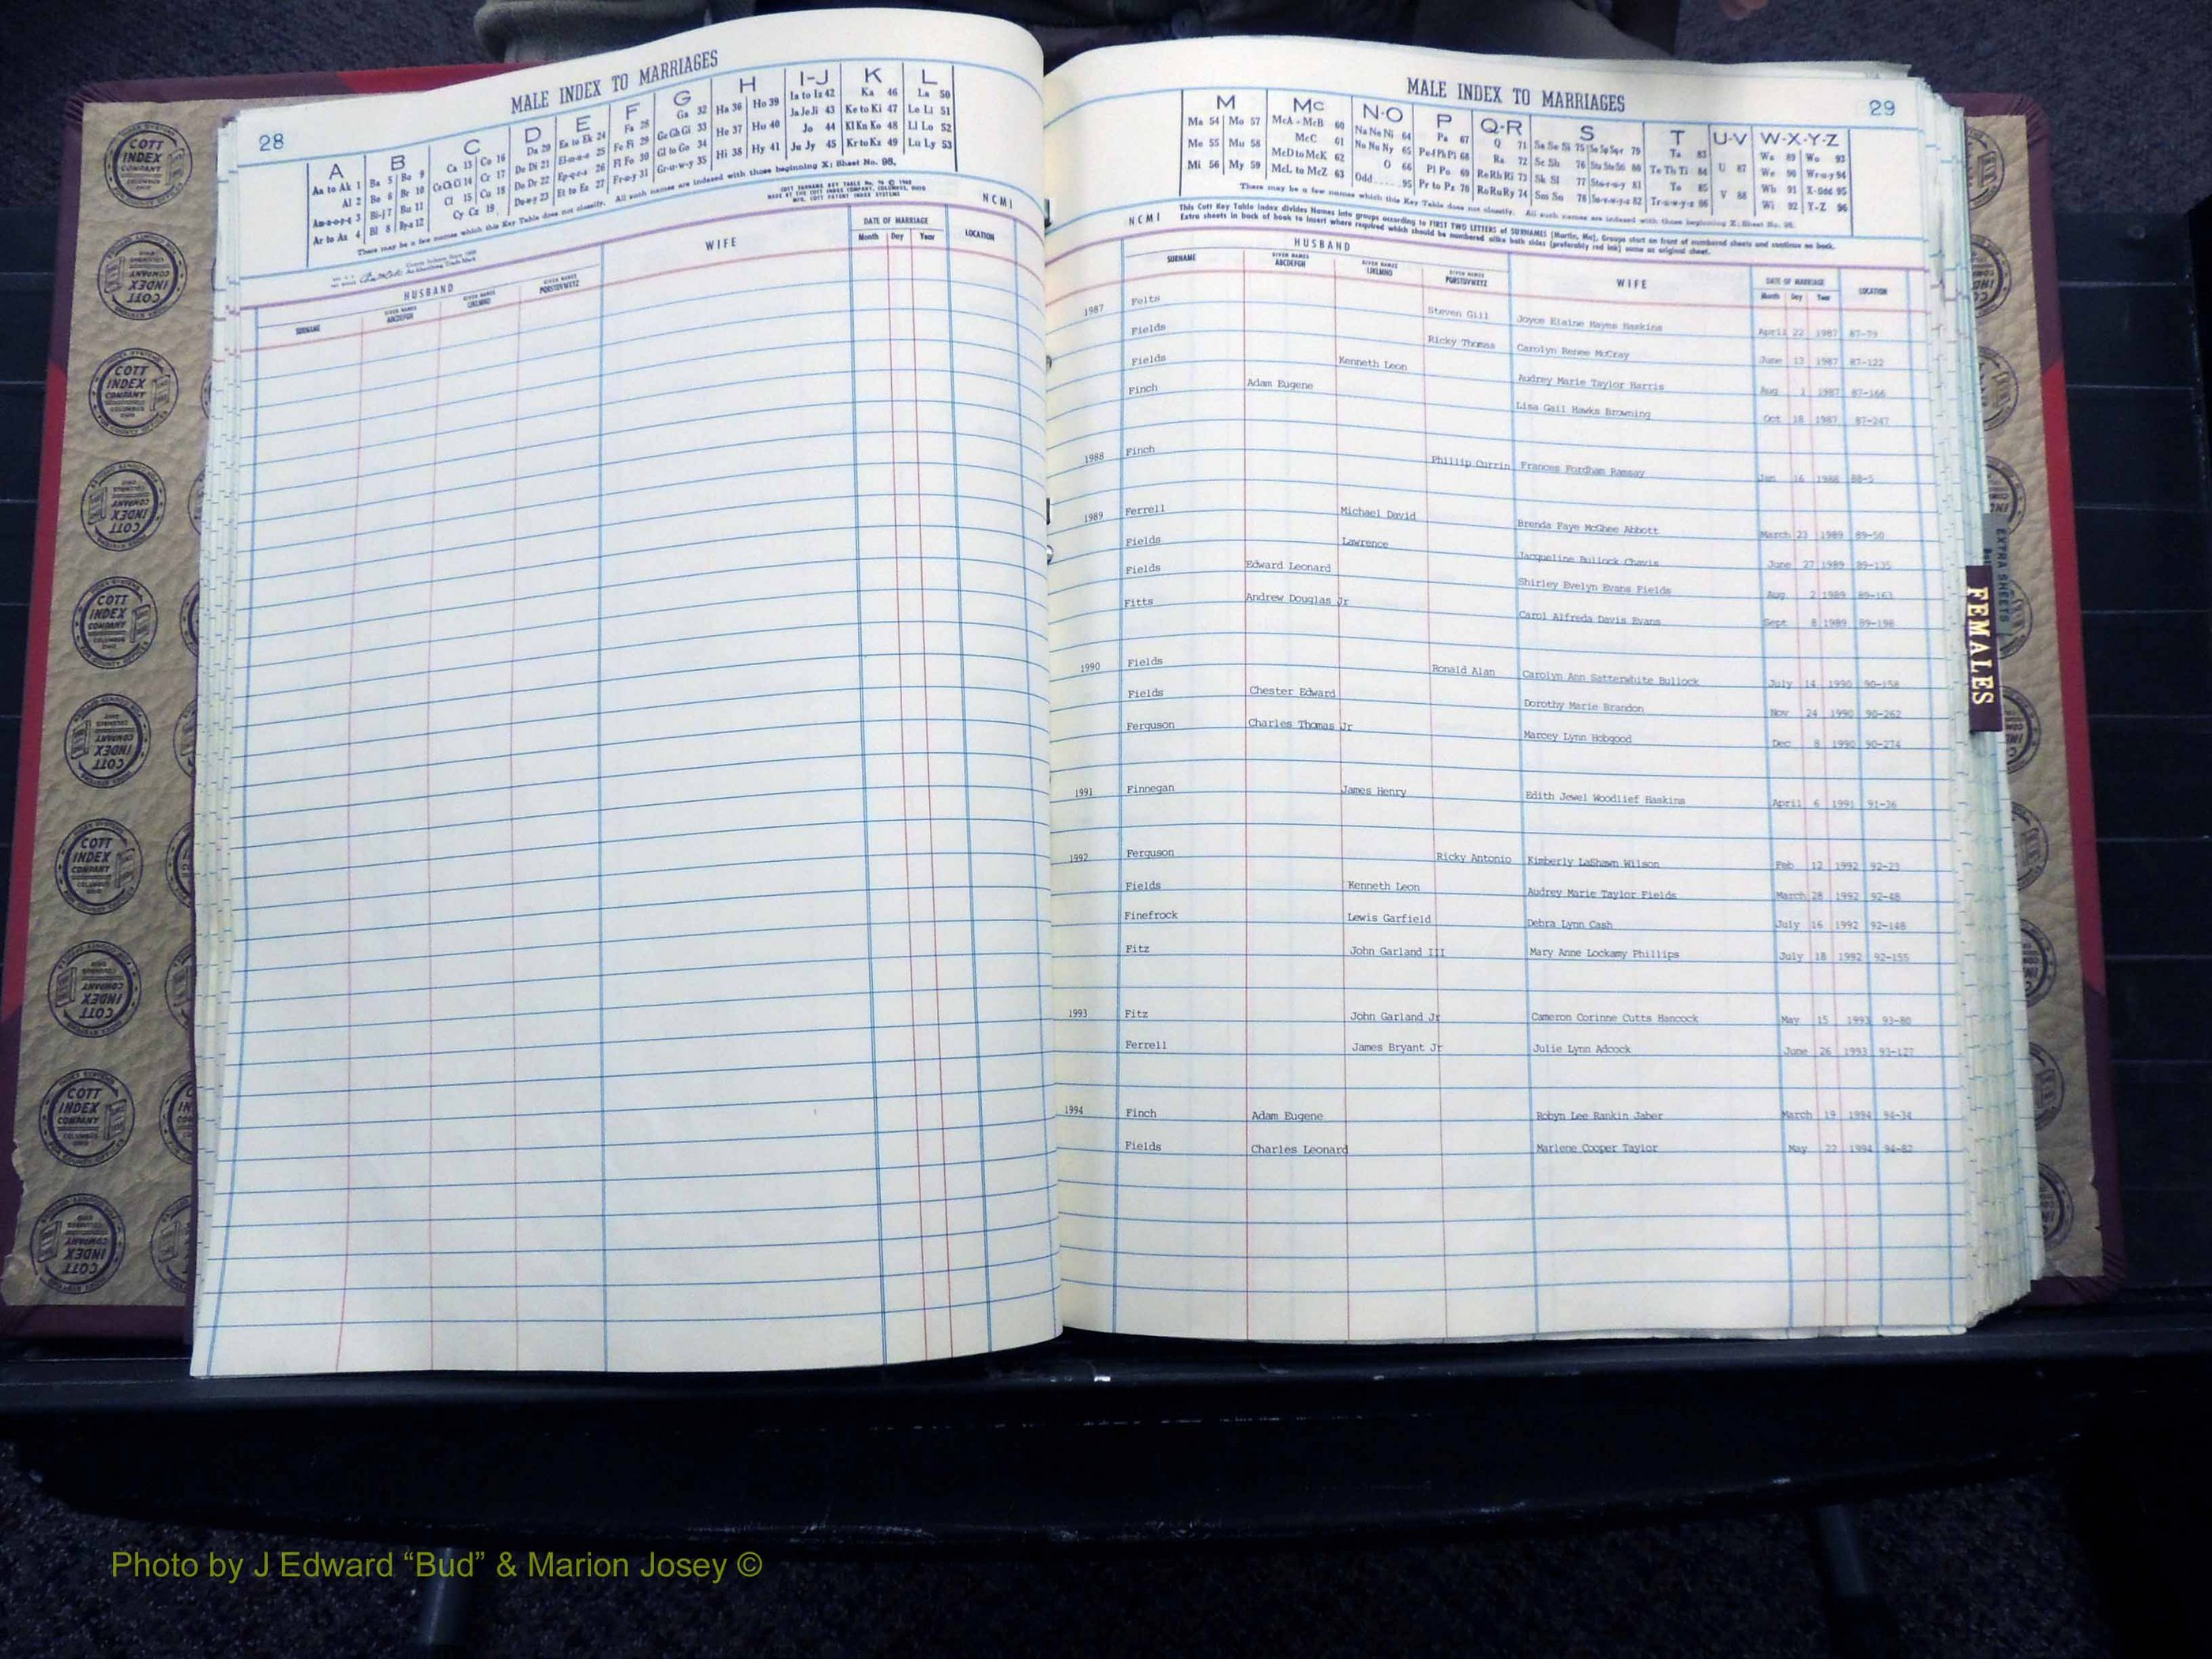 28
MALE INDEX TO MARRIAGES
A B C D E F G H I-J K L
Aa to Ak 1 Ba 5 Bo 9 Ca 13 Co 16 Da 20 Ea to Ek 24 Fa 28 Ga 32 Ha 36 Ho 39 Ia to Iz 42 Ka 46 La 50
Al 2 Be 6 Br 10 Ce Ch Ci 14 Cr 17 De Di 21 El-m-n-o 25 Fe Fi 29 Ge Gh Gi 33 He 37 Hu 40 Ja Je Ji 43 Ke to Ki 47 Le Li 51
Am-n-o-p-q 3 Bi-j 7 Bu 11 Cl 15 Cu 18 Do Dr 22 Ep-q-r-s 26 Fl Fo 30 Gl to Go 34 Hi 38 Hy 41 Jo 44 Kl Kn Ko 48 Ll Lo 52
Ar to Az 4 Bl 8 By-z 12 Cy Cz 19 Du-w-y 23 Et to Ez 27 Fr-u-y 31 Gr-u-w-y 35 Ju Jy 45 Kr to Kz 49 Lu Ly 53
There may be a few names which this Key Table does not classify. All such names are indexed with those beginning X; Sheet No. 98.
NCMI
HUSBAND WIFE DATE OF MARRIAGE LOCATION
SURNAME GIVEN NAMES ABCDEFGH GIVEN NAMES IJKLMNO GIVEN NAMES PQRSTUVWXYZ Month Day Year
MALE INDEX TO MARRIAGES
29
M Mc N-O P Q-R S T U-V W-X-Y-Z
Ma 54 Mo 57 McA - McB 60 Na Ne Ni 64 Pa 67 Q 71 Ta 83 Wa 89 Wo 93
Me 55 Mu 58 McC 61 No Nu Ny 65 Pe-f Ph Pi 68 Ra 72 Sc Sh 76 Te Th Ti 84 U 87 We 90 Wr-u-y 94
Mi 56 My 59 McD to McK 62 O 66 Pl Po 69 Re Rh Ri 73 Sk Sl 77 To 85 V 88 Wh 91 X-Odd 95
McL to McZ 63 Odd 95 Pr to Pz 70 Ro Ru Ry 74 Sm Sn 78 Tr-u-w-y-z 86 Wi 92 Y-Z 96
There may be a few names which this Key Table does not classify. All such names are indexed with those beginning X; Sheet No. 98.
NCMI
This Cott Key Table Index divides Names into groups according to FIRST TWO LETTERS of SURNAMES (Martin, Ma). Groups start on front of numbered sheets and continue on back.
Extra sheets in back of book to insert where required which should be numbered alike both sides (preferably red ink) same as original sheet.
HUSBAND WIFE DATE OF MARRIAGE LOCATION
SURNAME GIVEN NAMES ABCDEFGH GIVEN NAMES IJKLMNO GIVEN NAMES PQRSTUVWXYZ Month Day Year
1987 Felts Steven Gill Joyce Elaine Hayes Haskins April 22 1987 87-79
Fields Ricky Thomas Carolyn Renee McCray June 13 1987 87-122
Fields Kenneth Leon Audrey Marie Taylor Harris Aug 1 1987 87-166
Finch Adam Eugene Lisa Gail Hawks Browning Oct 18 1987 87-247
1988 Finch Phillip Currin Frances Fordham Ramsay Jan 16 1988 88-5
1989 Ferrell Michael David Brenda Faye McGhee Abbott March 23 1989 89-50
Fields Lawrence Jacqueline Bullock Chavis June 27 1989 89-135
Fields Edward Leonard Shirley Evelyn Evans Fields Aug 2 1989 89-163
Fitts Andrew Douglas Jr Carol Alfreda Davis Evans Sept 8 1989 89-198
1990 Fields Ronald Alan Carolyn Ann Satterwhite Bullock July 14 1990 90-158
Fields Chester Edward Dorothy Marie Brandon Nov 24 1990 90-262
Ferguson Charles Thomas Jr Marcey Lynn Hobgood Dec 8 1990 90-274
1991 Finnegan James Henry Edith Jewel Woodlief Haskins April 6 1991 91-36
1992 Ferguson Ricky Antonio Kimberly LaShawn Wilson Feb 12 1992 92-23
Fields Kenneth Leon Audrey Marie Taylor Fields March 28 1992 92-48
Finefrock Lewis Garfield Debra Lynn Cash July 16 1992 92-148
Fitz John Garland III Mary Anne Lockamy Phillips July 18 1992 92-155
1993 Fitz John Garland Jr Cameron Corinne Cutts Hancock May 15 1993 93-80
Ferrell James Bryant Jr Julie Lynn Adcock June 26 1993 93-127
1994 Finch Adam Eugene Robyn Lee Rankin Jaber March 19 1994 94-34
Fields Charles Leonard Marlene Cooper Taylor May 22 1994 94-82
EXTRA SHEETS
FEMALES
COTT INDEX COMPANY
Photo by J Edward “Bud” & Marion Josey ©